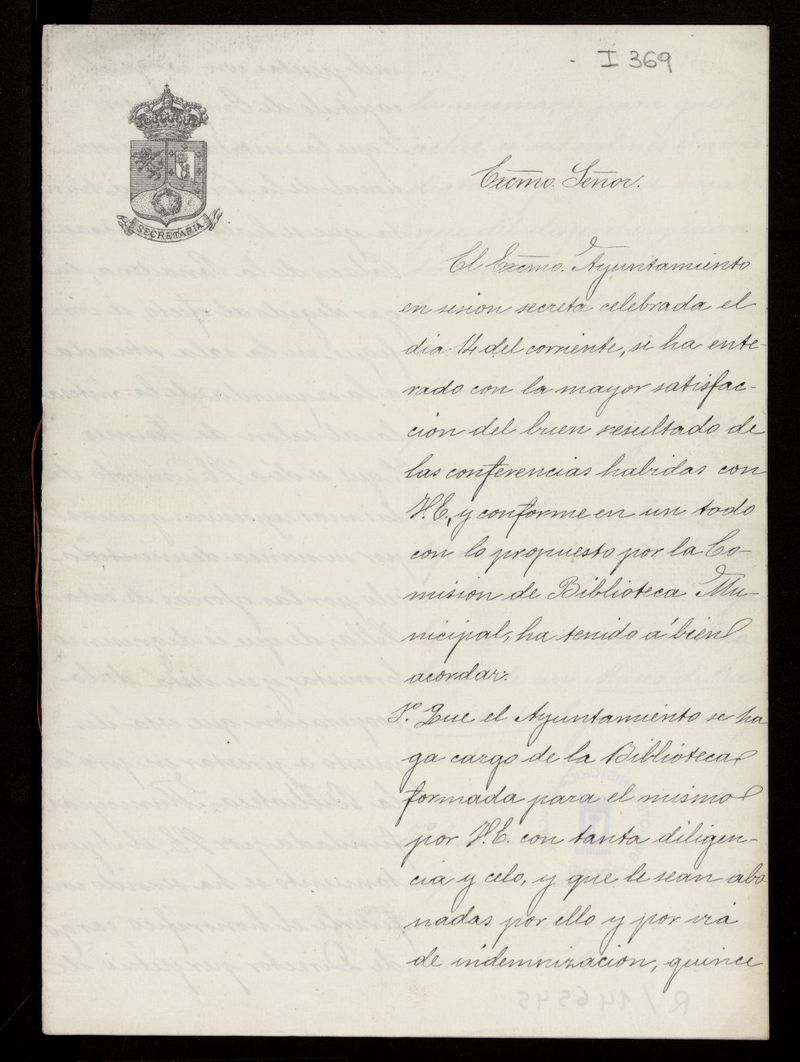 I 369
SECRETARIA
Excmo. Señor.
El Excmo. Ayuntamiento
en sesion secreta celebrada el
dia 14 del corriente, se ha ente-
rado con la mayor satisfac-
cion del buen resultado de
las conferencias habidas con
V.E., y conforme en un todo
con lo propuesto por la Co-
mision de Biblioteca Mu-
nicipal, ha tenido á bien
acordar:
1º Que el Ayuntamiento se ha
ga cargo de la Biblioteca
formada para el mismo
por V.E. con tanta diligen-
cia y celo, y que le sean abo
nadas por ello y por via
de indemnizacion, quince
R/146545